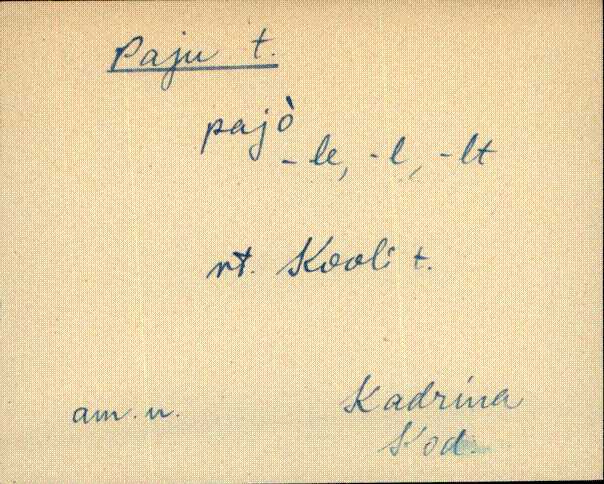 Paju t.
pajò
-le, -l, -lt
vt. Kooli t.
am. n. Kadrina
Kod.